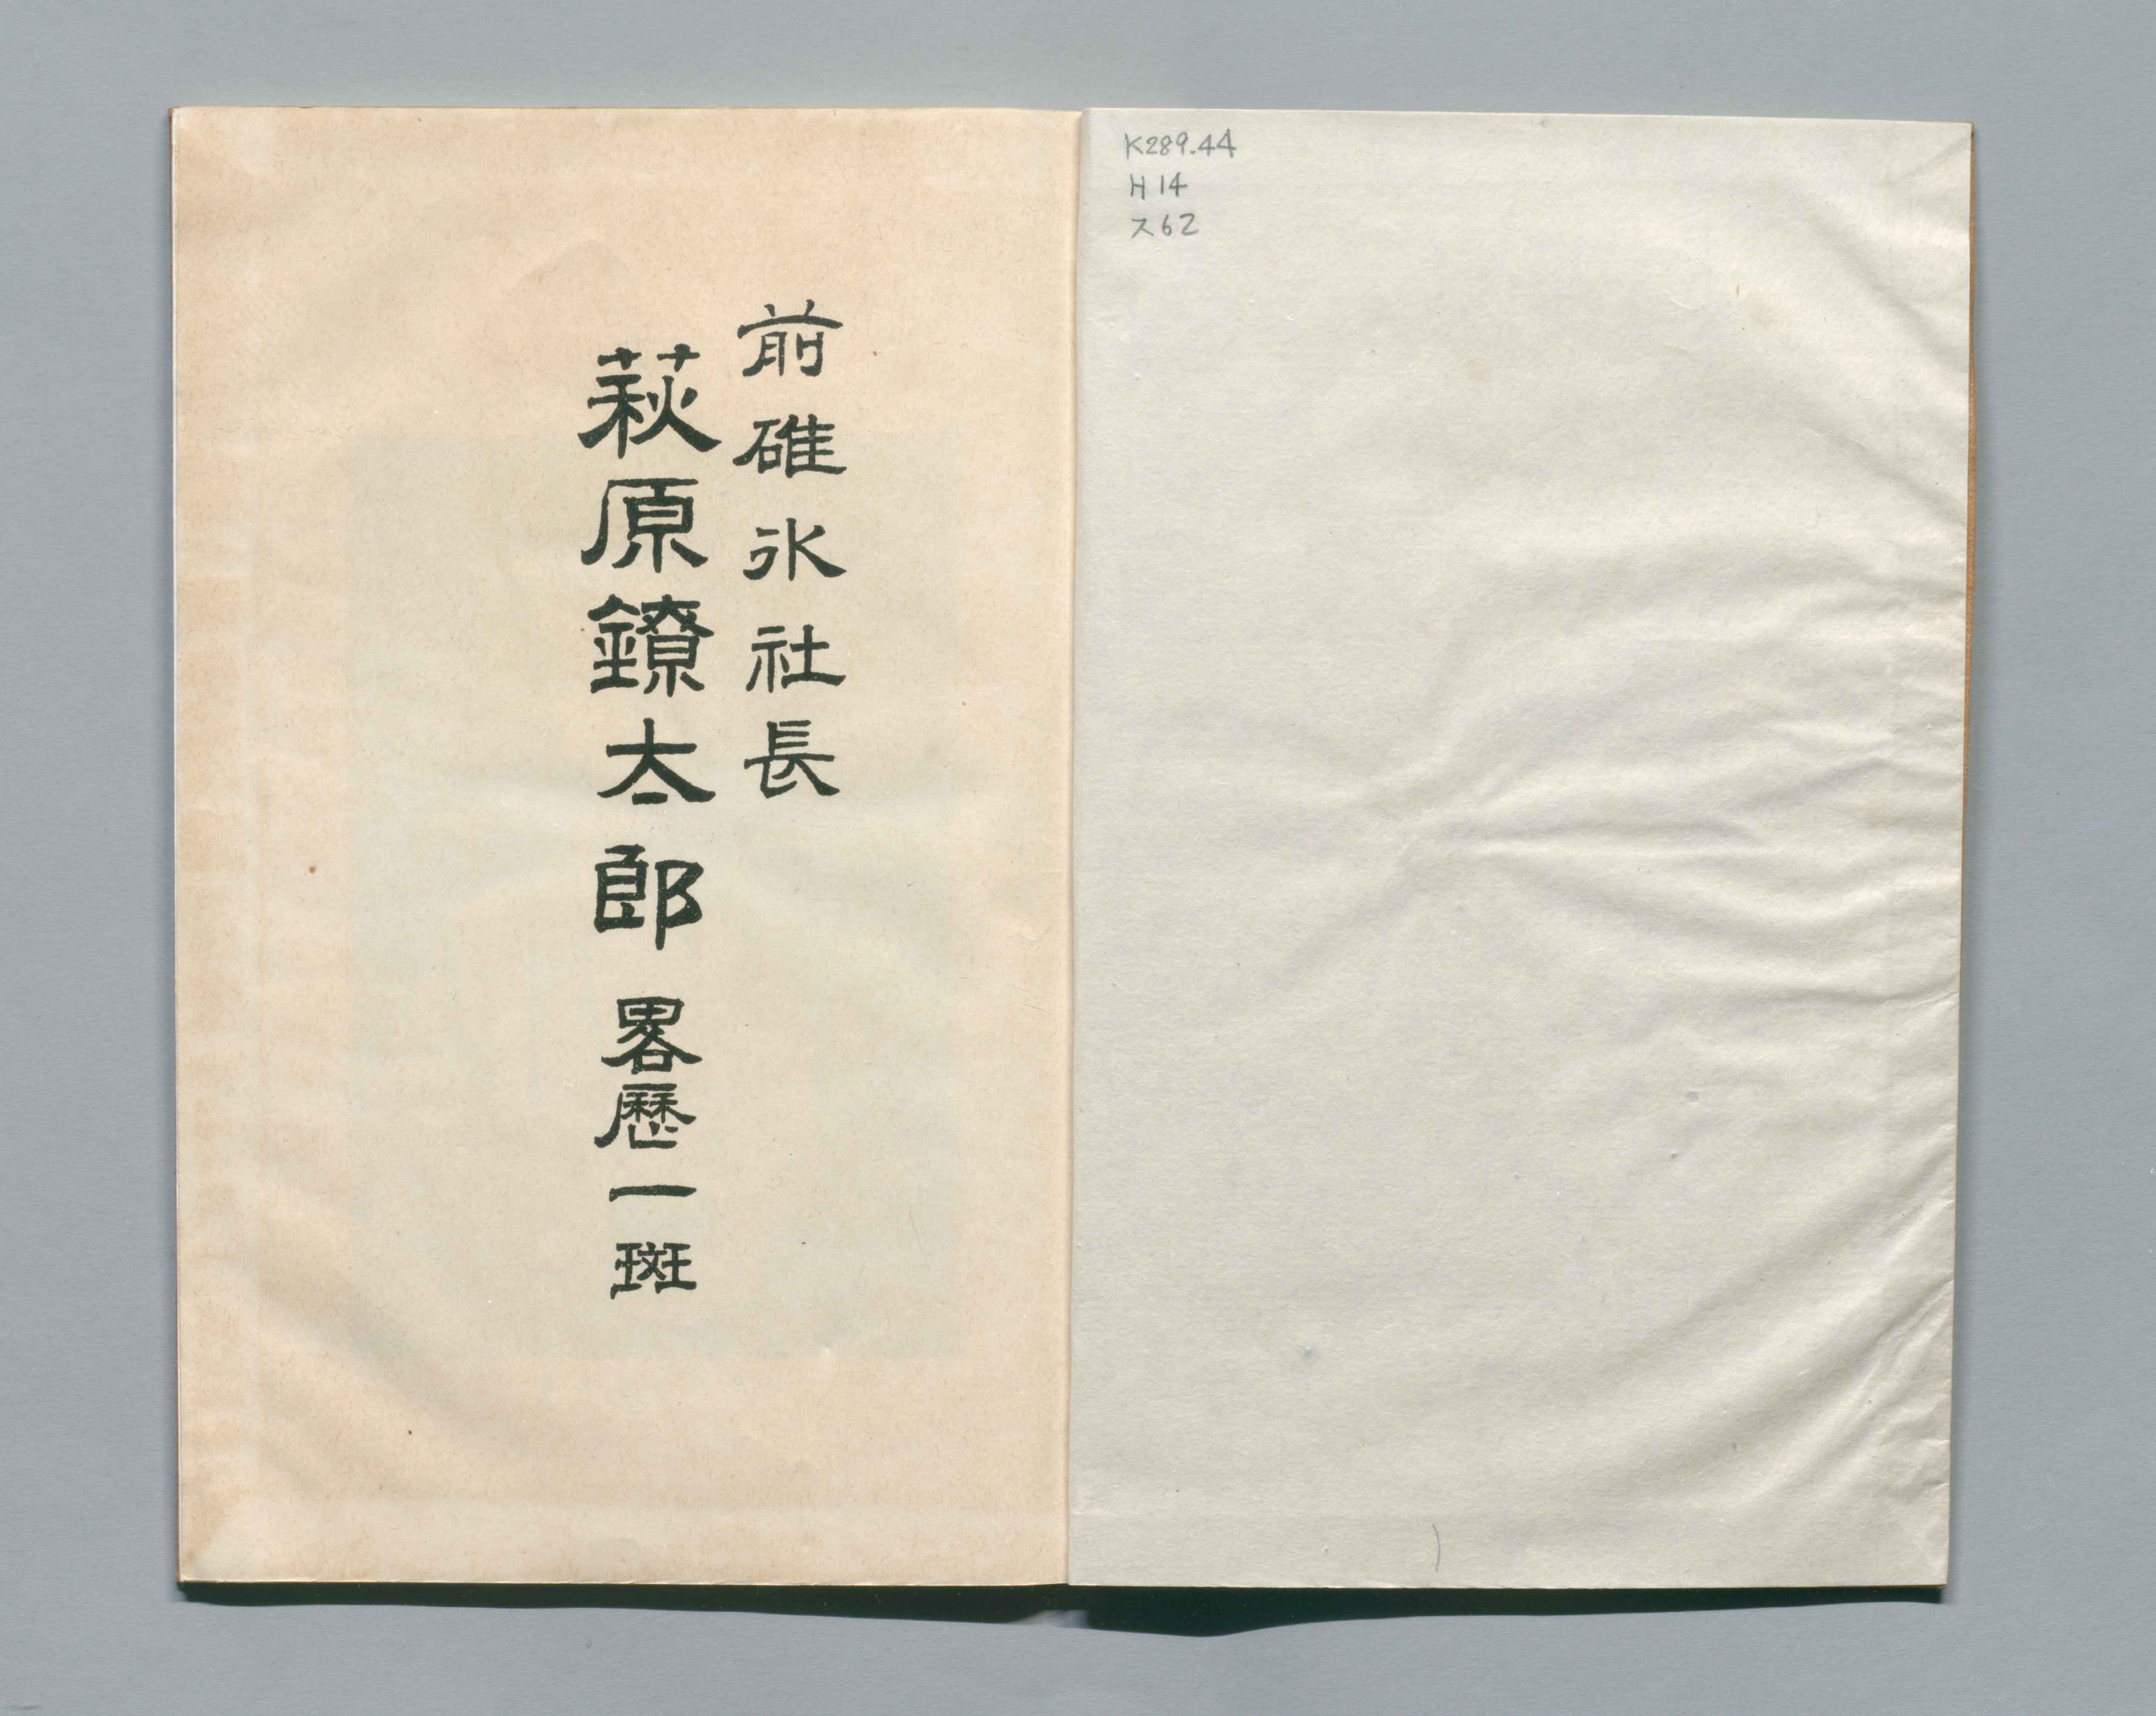 K289.44
H14
ス62
前碓氷社長
萩原鐐太郎畧歷一斑